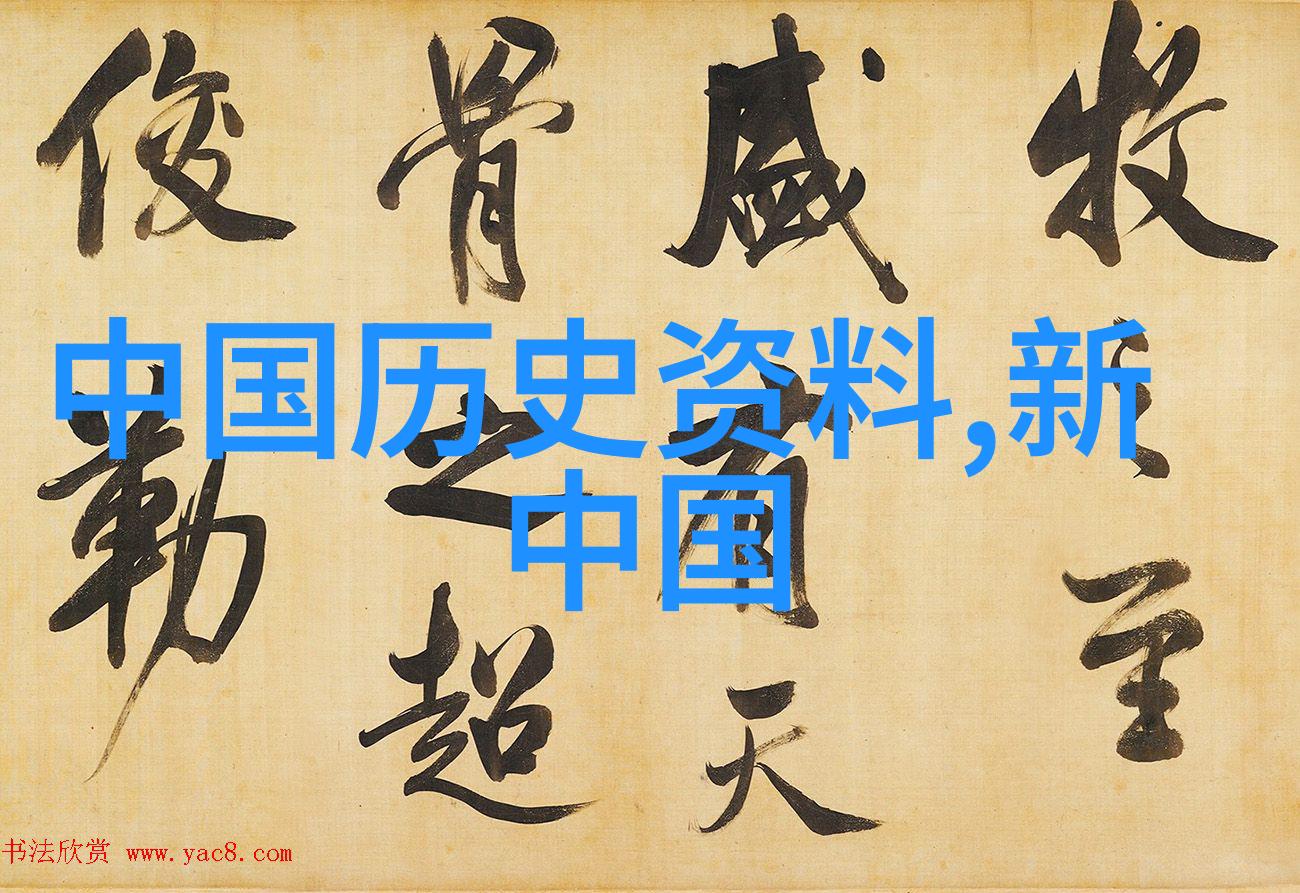 牧之至
盛有天
骨之超
俊勒
中国历史资料,新
中国
书法欣赏 www.yac8.com